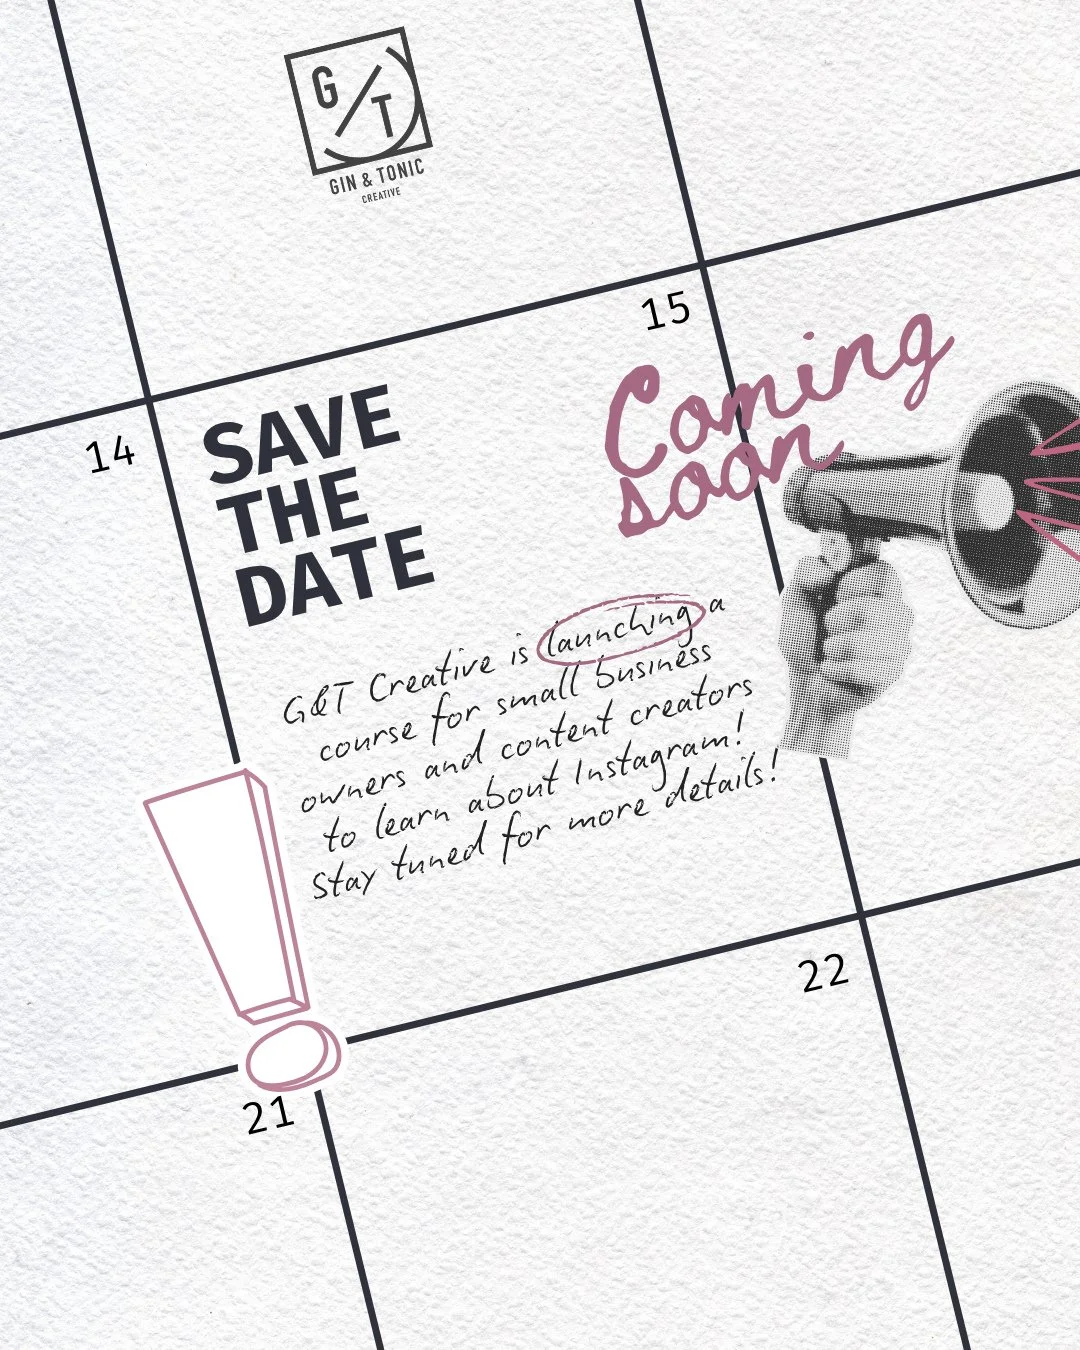 G
T
GIN & TONIC
CREATIVE
15
Coming
soon
14
SAVE
THE
DATE
G&T Creative is launching a
course for small business
owners and content creators
to learn about Instagram!
Stay tuned for more details!
22
21